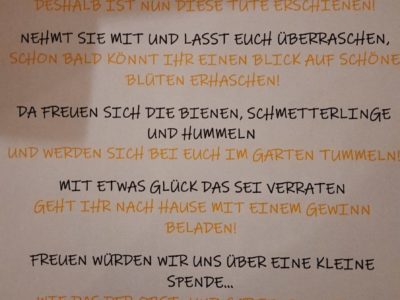 DESHALB IST NUN DIESE TÜTE ERSCHIENEN!
NEHMT SIE MIT UND LASST EUCH ÜBERRASCHEN,
SCHON BALD KÖNNT IHR EINEN BLICK AUF SCHÖNE
BLÜTEN ERHASCHEN!
DA FREUEN SICH DIE BIENEN, SCHMETTERLINGE
UND HUMMELN
UND WERDEN SICH BEI EUCH IM GARTEN TUMMELN!
MIT ETWAS GLÜCK DAS SEI VERRATEN
GEHT IHR NACH HAUSE MIT EINEM GEWINN
BELADEN!
FREUEN WÜRDEN WIR UNS ÜBER EINE KLEINE
SPENDE...